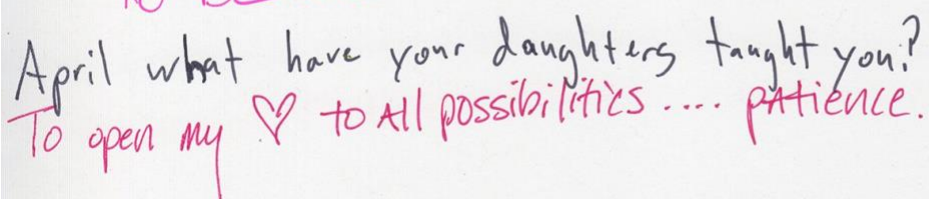 April what have your daughters taught you?
To open my ♡ to All possibilities .... pAtience.